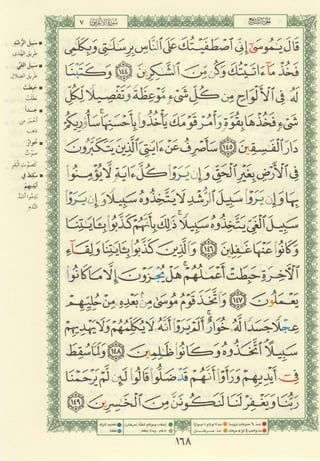 سُورَةُ الأَعْرَافِ ٧
الجزء التاسع
قَالَ يَٰمُوسَىٰٓ إِنِّي ٱصۡطَفَيۡتُكَ عَلَى ٱلنَّاسِ بِرِسَٰلَٰتِي وَبِكَلَٰمِي
فَخُذۡ مَآ ءَاتَيۡتُكَ وَكُن مِّنَ ٱلشَّٰكِرِينَ ١٤٤ وَكَتَبۡنَا
لَهُۥ فِي ٱلۡأَلۡوَاحِ مِن كُلِّ شَيۡءٖ مَّوۡعِظَةٗ وَتَفۡصِيلٗا لِّكُلِّ
شَيۡءٖ فَخُذۡهَا بِقُوَّةٖ وَأۡمُرۡ قَوۡمَكَ يَأۡخُذُواْ بِأَحۡسَنِهَاۚ سَأُوْرِيكُمۡ
دَارَ ٱلۡفَٰسِقِينَ ١٤٥ سَأَصۡرِفُ عَنۡ ءَايَٰتِيَ ٱلَّذِينَ يَتَكَبَّرُونَ
فِي ٱلۡأَرۡضِ بِغَيۡرِ ٱلۡحَقِّ وَإِن يَرَوۡاْ كُلَّ ءَايَةٖ لَّا يُؤۡمِنُواْ
بِهَا وَإِن يَرَوۡاْ سَبِيلَ ٱلرُّشۡدِ لَا يَتَّخِذُوهُ سَبِيلٗا وَإِن يَرَوۡاْ
سَبِيلَ ٱلۡغَيِّ يَتَّخِذُوهُ سَبِيلٗاۚ ذَٰلِكَ بِأَنَّهُمۡ كَذَّبُواْ بِـَٔايَٰتِنَا
وَكَانُواْ عَنۡهَا غَٰفِلِينَ ١٤٦ وَٱلَّذِينَ كَذَّبُواْ بِـَٔايَٰتِنَا وَلِقَآءِ
ٱلۡأٓخِرَةِ حَبِطَتۡ أَعۡمَٰلُهُمۡۚ هَلۡ يُجۡزَوۡنَ إِلَّا مَا كَانُواْ
يَعۡمَلُونَ ١٤٧ وَٱتَّخَذَ قَوۡمُ مُوسَىٰ مِنۢ بَعۡدِهِۦ مِنۡ حُلِيِّهِمۡ
عِجۡلٗا جَسَدٗا لَّهُۥ خُوَارٌۚ أَلَمۡ يَرَوۡاْ أَنَّهُۥ لَا يُكَلِّمُهُمۡ وَلَا يَهۡدِيهِمۡ
سَبِيلًاۘ ٱتَّخَذُوهُ وَكَانُواْ ظَٰلِمِينَ ١٤٨ وَلَمَّا سُقِطَ
فِيٓ أَيۡدِيهِمۡ وَرَأَوۡاْ أَنَّهُمۡ قَدۡ ضَلُّواْ قَالُواْ لَئِن لَّمۡ يَرۡحَمۡنَا
رَبُّنَا وَيَغۡفِرۡ لَنَا لَنَكُونَنَّ مِنَ ٱلۡخَٰسِرِينَ ١٤٩
سَبِيلَ الرُّشْدِ
طريق الهدى
سَبِيلَ الغَيِّ
طريق الضلال
حَبِطَتْ
بطلت
جَسَدًا
خُوَارٌ
سُقِطَ فِي
أَيْدِيهِمْ
ندموا أشد
الندم
١٦٨